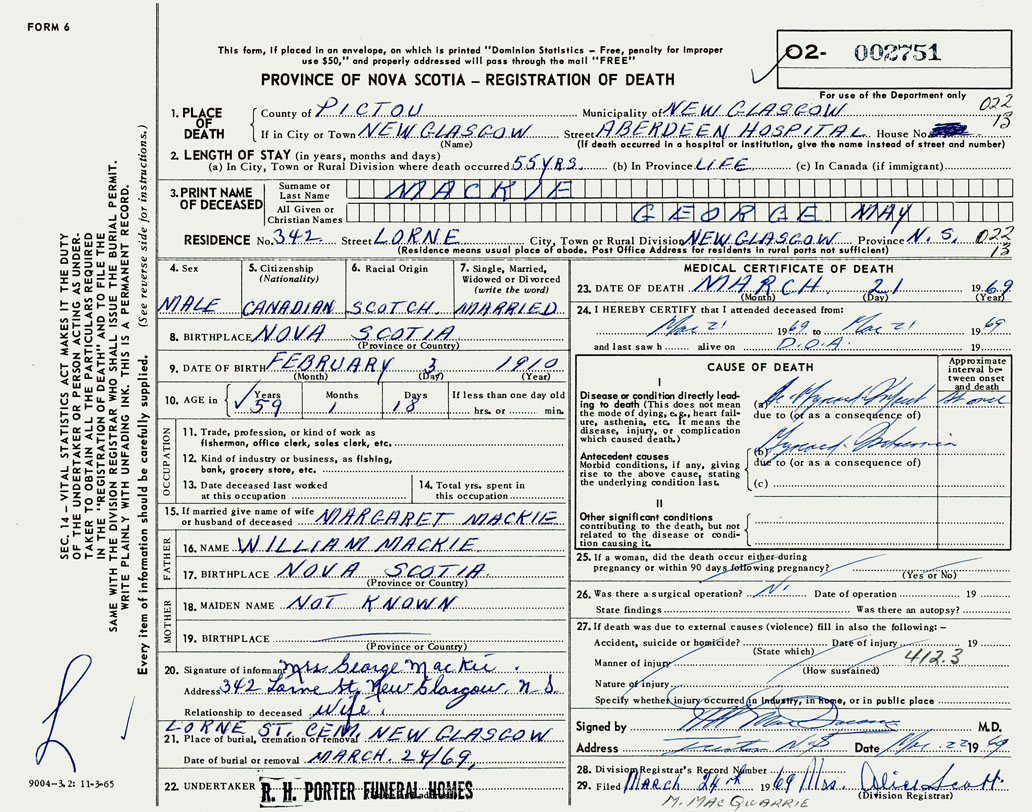 FORM 6
This form, if placed in an envelope, on which is printed "Dominion Statistics – Free, penalty for improper
use $50," and properly addressed will pass through the mail "FREE"
PROVINCE OF NOVA SCOTIA – REGISTRATION OF DEATH
O2- 002751
For use of the Department only
022
13
1. PLACE OF DEATH
County of PICTOU Municipality of NEW GLASGOW
If in City or Town NEW GLASGOW Street ABERDEEN HOSPITAL House No.
(Name) (If death occurred in a hospital or institution, give the name instead of street and number)
2. LENGTH OF STAY (in years, months and days)
(a) In City, Town or Rural Division where death occurred 55 YRS. (b) In Province LIFE (c) In Canada (if immigrant)
3. PRINT NAME OF DECEASED
Surname or Last Name MACKIE
All Given or Christian Names GEORGE MAY
RESIDENCE No. 342 Street LORNE City, Town or Rural Division NEW GLASGOW Province N. S. 022
13
(Residence means usual place of abode. Post Office Address for residents in rural parts not sufficient)
4. Sex
MALE
5. Citizenship
(Nationality)
CANADIAN
6. Racial Origin
SCOTCH
7. Single, Married,
Widowed or Divorced
(write the word)
MARRIED
8. BIRTHPLACE NOVA SCOTIA
(Province or Country)
9. DATE OF BIRTH FEBRUARY 3 1910
(Month) (Day) (Year)
10. AGE in Years Months Days If less than one day old
59 1 18 hrs. or min.
OCCUPATION
11. Trade, profession, or kind of work as
fisherman, office clerk, sales clerk, etc.
12. Kind of industry or business, as fishing,
bank, grocery store, etc.
13. Date deceased last worked
at this occupation
14. Total yrs. spent in
this occupation
15. If married give name of wife
or husband of deceased MARGARET MACKIE
FATHER
16. NAME WILLIAM MACKIE
17. BIRTHPLACE NOVA SCOTIA
(Province or Country)
MOTHER
18. MAIDEN NAME NOT KNOWN
19. BIRTHPLACE
(Province or Country)
20. Signature of informant Mrs George Mackie.
Address 342 Lorne St, New Glasgow, N. S.
Relationship to deceased Wife.
LORNE ST. CEM. NEW GLASGOW
21. Place of burial, cremation or removal
Date of burial or removal MARCH. 24/69,
22. UNDERTAKER R. H. PORTER FUNERAL HOMES
MEDICAL CERTIFICATE OF DEATH
23. DATE OF DEATH MARCH 21 1969
(Month) (Day) (Year)
24. I HEREBY CERTIFY that I attended deceased from:
Mar 21 1969 to Mar 21 1969
and last saw h alive on D.O.A. 19
CAUSE OF DEATH
Approximate
interval be-
tween onset
and death
I
Disease or condition directly lead-
ing to death (This does not mean
the mode of dying, e.g., heart fail-
ure, asthenia, etc. It means the
disease, injury, or complication
which caused death.)
(a)
At once
due to (or as a consequence of)
Antecedent causes
Morbid conditions, if any, giving
rise to the above cause, stating
the underlying condition last.
(b)
due to (or as a consequence of)
(c)
II
Other significant conditions
contributing to the death, but not
related to the disease or condi-
tion causing it.
25. If a woman, did the death occur either during
pregnancy or within 90 days following pregnancy?
(Yes or No)
26. Was there a surgical operation? No Date of operation 19
State findings Was there an autopsy?
27. If death was due to external causes (violence) fill in also the following: –
Accident, suicide or homicide? Date of injury 19
(State which)
Manner of injury 412.3
(How sustained)
Nature of injury
Specify whether injury occurred in industry, in home, or in public place
Signed by M.D.
Address Trenton N.S Date Mar. 22 1969
28. Division Registrar's Record Number
29. Filed March 24th 1969 Mrs. Alice Scott
(Division Registrar)
M. MAC QUARRIE
SEC. 14 – VITAL STATISTICS ACT MAKES IT THE DUTY
OF THE UNDERTAKER OR PERSON ACTING AS UNDER-
TAKER TO OBTAIN ALL THE PARTICULARS REQUIRED
IN THE "REGISTRATION OF DEATH" AND TO FILE THE
SAME WITH THE DIVISION REGISTRAR WHO SHALL ISSUE THE BURIAL PERMIT.
WRITE PLAINLY WITH UNFADING INK. THIS IS A PERMANENT RECORD.
Every item of information should be carefully supplied. (See reverse side for instructions.)
9004–3.2: 11-3-65